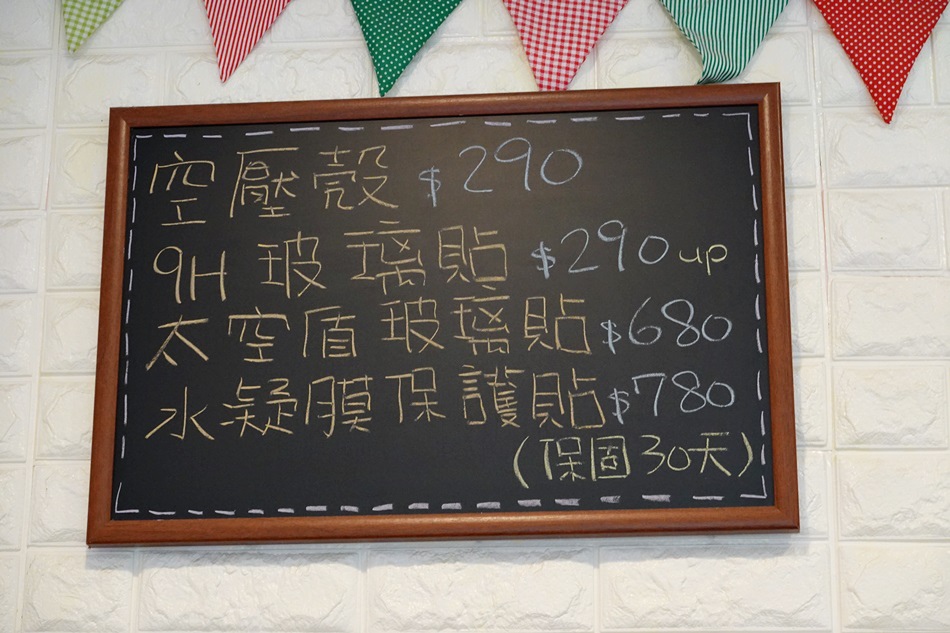 空壓殼 $290
9H 玻璃貼 $290 up
太空盾玻璃貼 $680
水凝膜保護貼 $780
(保固30天)